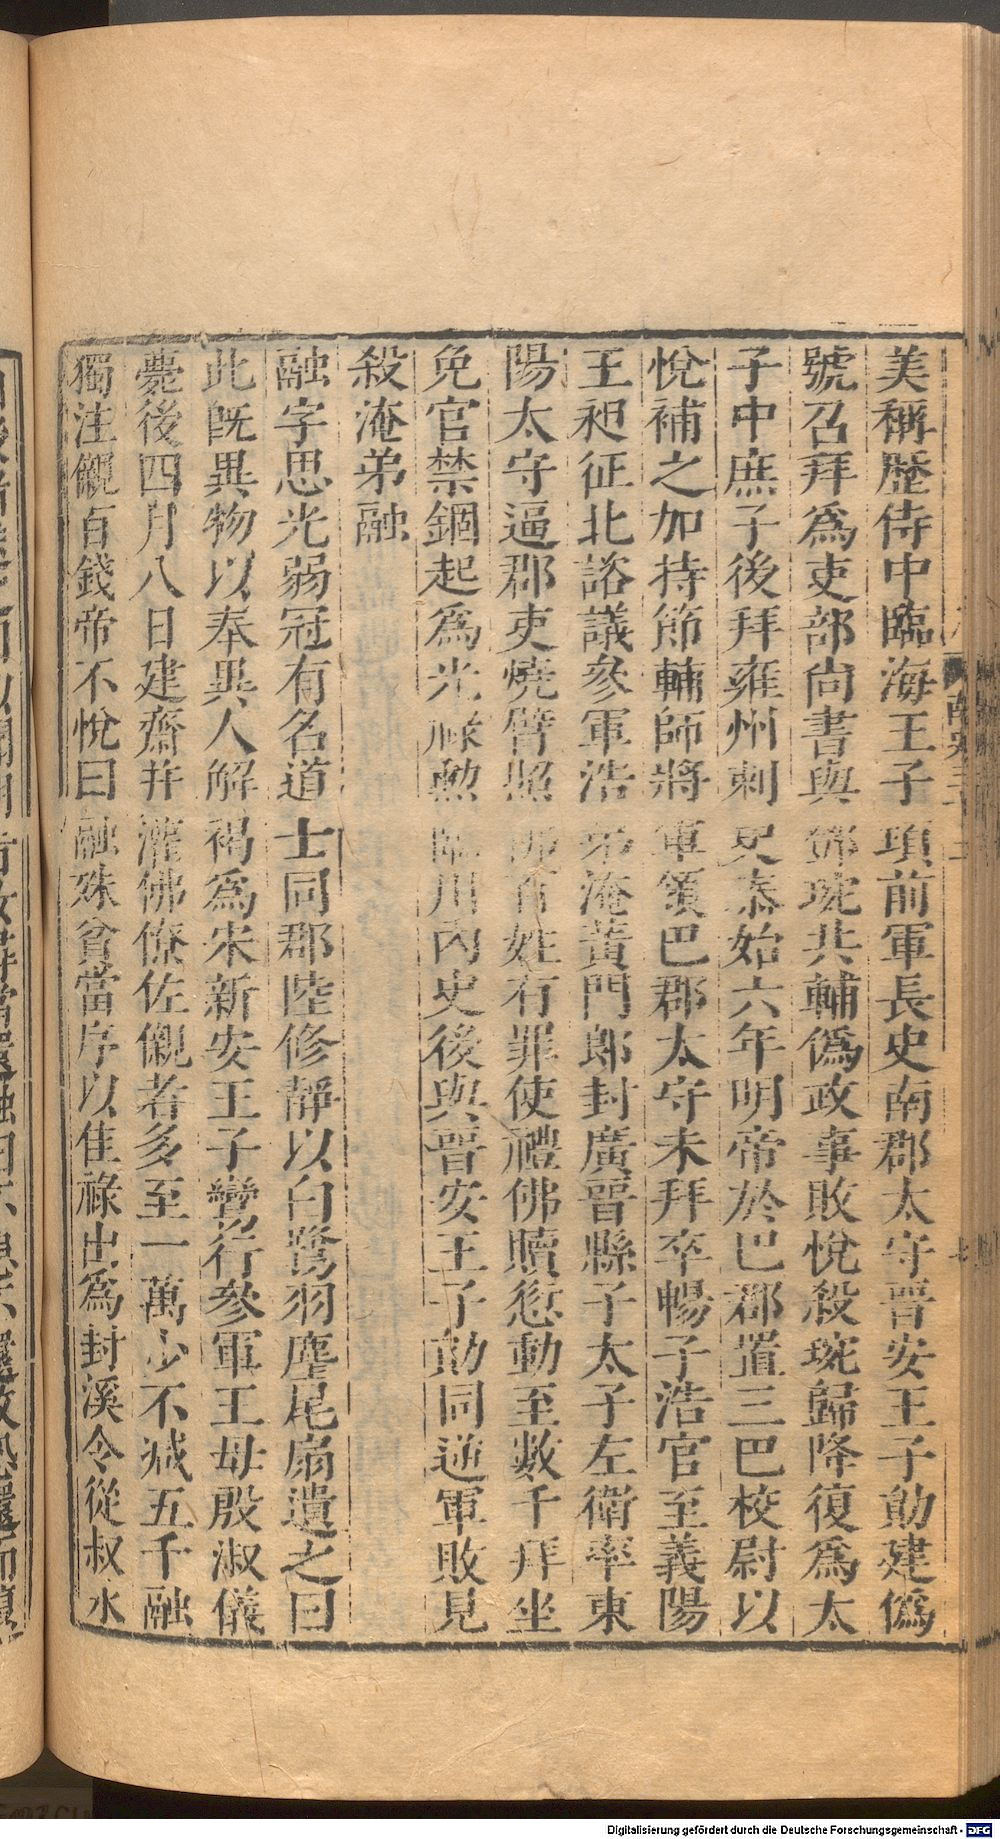 美稱歷侍中臨海王子頊前軍長史南郡太守晉安王子勛建僞
號召拜爲吏部尚書與鄧琬共輔僞政事敗悅殺琬歸降復爲太
子中庶子後拜雍州刺史泰始六年明帝於巴郡置三巴校尉以
悅補之加持節輔師將軍領巴郡太守未拜卒暢子浩官至義陽
王昶征北諮議參軍浩弟淹黃門郎封廣晉縣子太子左衛率東
陽太守逼郡吏燒臂照佛百姓有罪使禮佛贖愆動至數千拜坐
免官禁錮起爲光祿勲臨川內史後與晉安王子勛同逆軍敗見
殺淹弟融
融字思光弱冠有名道士同郡陸修靜以白鷺羽麈尾扇遺之曰
此既異物以奉異人解褐爲宋新安王子鸞行參軍王母殷淑儀
薨後四月八日建齋并灌佛僚佐儭者多至一萬少不減五千融
獨注儭百錢帝不悅曰融殊貧當序以佳祿出爲封溪令從叔永
Digitalisierung gefördert durch die Deutsche Forschungsgemeinschaft - DFG